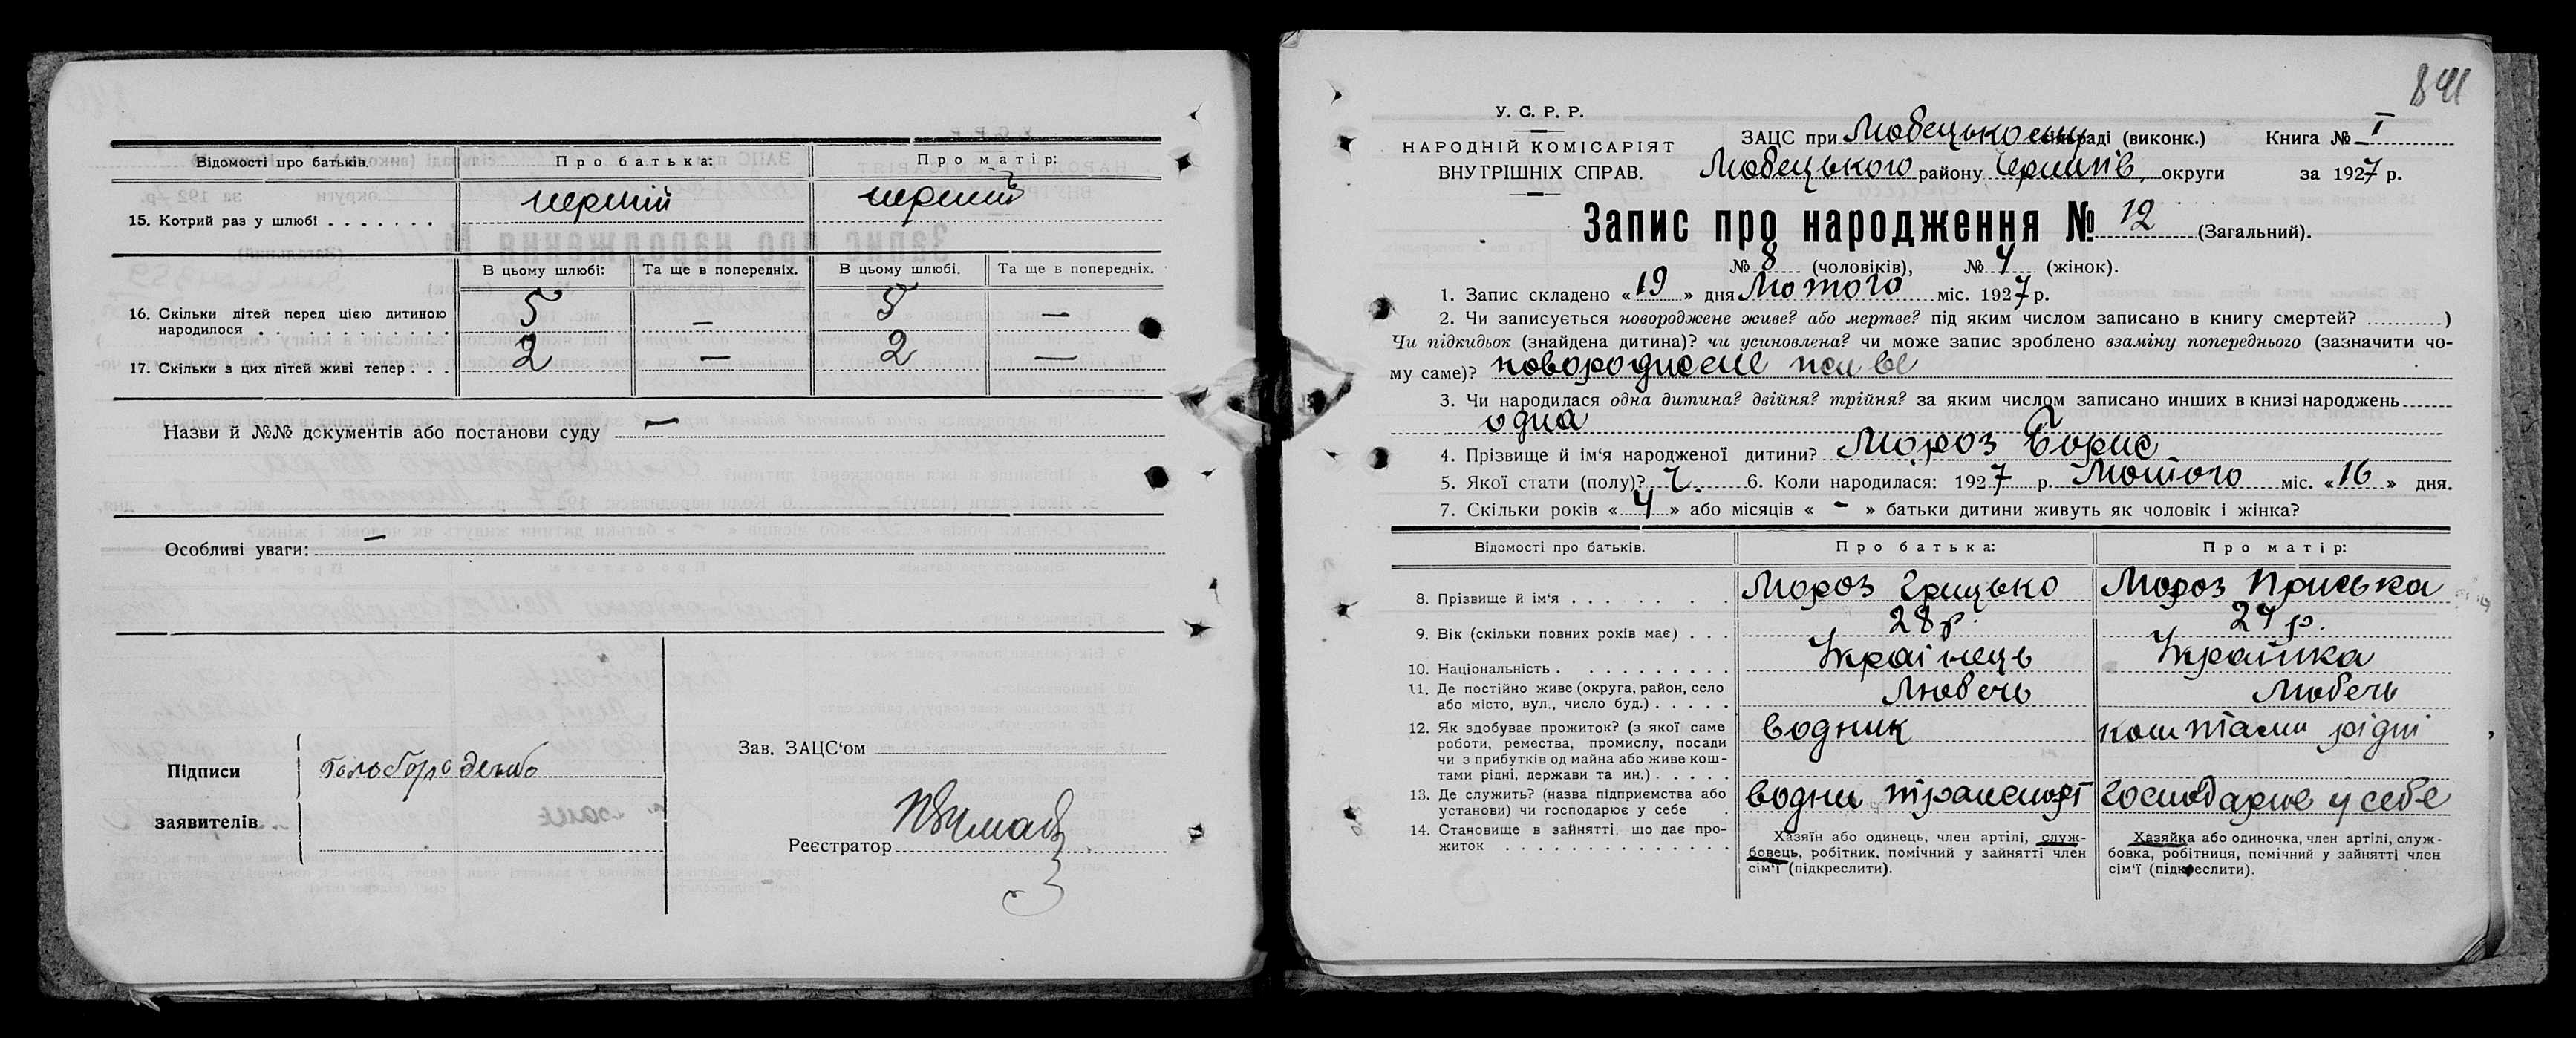 Відомості про батьків.
Про батька:
Про матір:
15. Котрий раз у шлюбі
перший
перший
В цьому шлюбі:
Та ще в попередніх.
В цьому шлюбі.
Та ще в попередніх.
16. Скільки дітей перед цією дитиною
народилося
5
—
5
—
17. Скільки з цих дітей живі тепер
2
—
2
—
Назви й №№ документів або постанови суду —
Особливі уваги: —
Підписи
заявителів
Зав. ЗАЦС‘ом
Реєстратор
841
У. С. Р. Р.
НАРОДНІЙ КОМІСАРІЯТ
ВНУТРІШНІХ СПРАВ.
ЗАЦС при Любецькому сільраді (виконк.)
Книга № I
Любецького району Черніг. округи
за 1927 р.
Запис про народження № 12 (Загальний).
№ 8 (чоловіків), № 4 (жінок).
1. Запис складено «19» дня Лютого міс. 1927 р.
2. Чи записується новороджене живе? або мертве? під яким числом записано в книгу смертей? )
Чи підкидьок (знайдена дитина)? чи усиновлена? чи може запис зроблено взаміну попереднього (зазначити чо-
му саме)? новороджене живе
3. Чи народилася одна дитина? двійня? трійня? за яким числом записано инших в книзі народжень
одна
4. Прізвище й ім‘я народженої дитини? Мороз Борис
5. Якої стати (полу)? ч. 6. Коли народилася: 1927 р. Лютого міс. «16» дня.
7. Скільки років «4» або місяців « - » батьки дитини живуть як чоловік і жінка?
Відомості про батьків.
Про батька:
Про матір:
8. Прізвище й ім‘я
Мороз Грицько
Мороз Приська
9. Вік (скільки повних років має)
28 р.
24 р.
10. Національність
Українець
Українка
11. Де постійно живе (округа, район, село
або місто, вул., число буд.)
Любечь
Любечь
12. Як здобуває прожиток? (з якої саме
роботи, ремества, промислу, посади
чи з прибутків од майна або живе кош-
тами рідні, держави та ин.)
водник
коштами рідні
13. Де служить? (назва підприємства або
установи) чи господарює у себе
водни транспорт
господарює у себе
14. Становище в зайнятті, що дає про-
житок
Хазяїн або одинець, член артілі, служ-
бовець, робітник, помічний у зайнятті член
сім‘ї (підкреслити).
Хазяйка або одиночка, член артілі, служ-
бовка, робітниця, помічний у зайнятті член
сім‘ї (підкреслити).